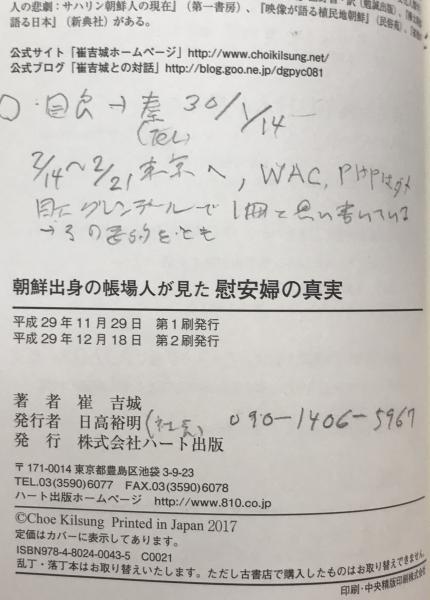 人の悲劇:サハリン朝鮮人の現在』(第一書房)、『映像が語る植民地朝鮮』(民俗苑)、
語る日本』(新典社)がある。
公式サイト「崔吉城ホームページ」http://www.choikilsung.net/
公式ブログ「崔吉城との対話」http://blog.goo.ne.jp/dgpyc081
30/1/14
(TEL)
2/14～2/21 東京へ, WAC, PHPはダメ
グレンデールで1冊と思い書いている
朝鮮出身の帳場人が見た 慰安婦の真実
平成29年11月29日 第1刷発行
平成29年12月18日 第2刷発行
著 者 崔 吉城
発行者 日高裕明(社長) 090-1406-5967
発 行 株式会社ハート出版
〒171-0014 東京都豊島区池袋3-9-23
TEL.03(3590)6077 FAX.03(3590)6078
ハート出版ホームページ http://www.810.co.jp
©Choe Kilsung Printed in Japan 2017
定価はカバーに表示してあります。
ISBN978-4-8024-0043-5 C0021
乱丁・落丁本はお取り替えいたします。ただし古書店で購入したものはお取り替えできません。
印刷・中央精版印刷株式会社